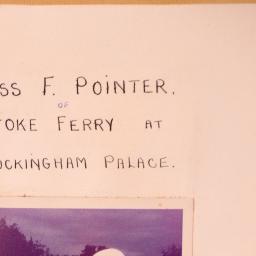 SS F. POINTER.
OF
TOKE FERRY AT
OCKINGHAM PALACE.